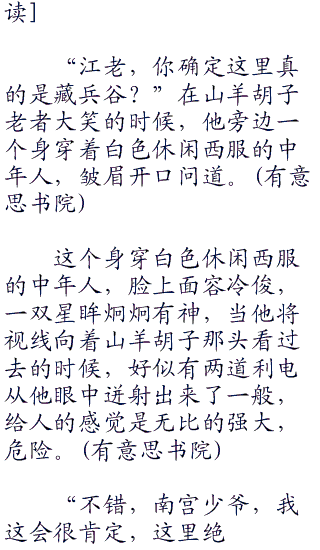 读]
“江老，你确定这里真
的是藏兵谷？”在山羊胡子
老者大笑的时候，他旁边一
个身穿着白色休闲西服的中
年人，皱眉开口问道。(有意
思书院)
这个身穿白色休闲西服
的中年人，脸上面容冷俊，
一双星眸炯炯有神，当他将
视线向着山羊胡子那头看过
去的时候，好似有两道利电
从他眼中迸射出来了一般，
给人的感觉是无比的强大，
危险。(有意思书院)
“不错，南宫少爷，我
这会很肯定，这里绝